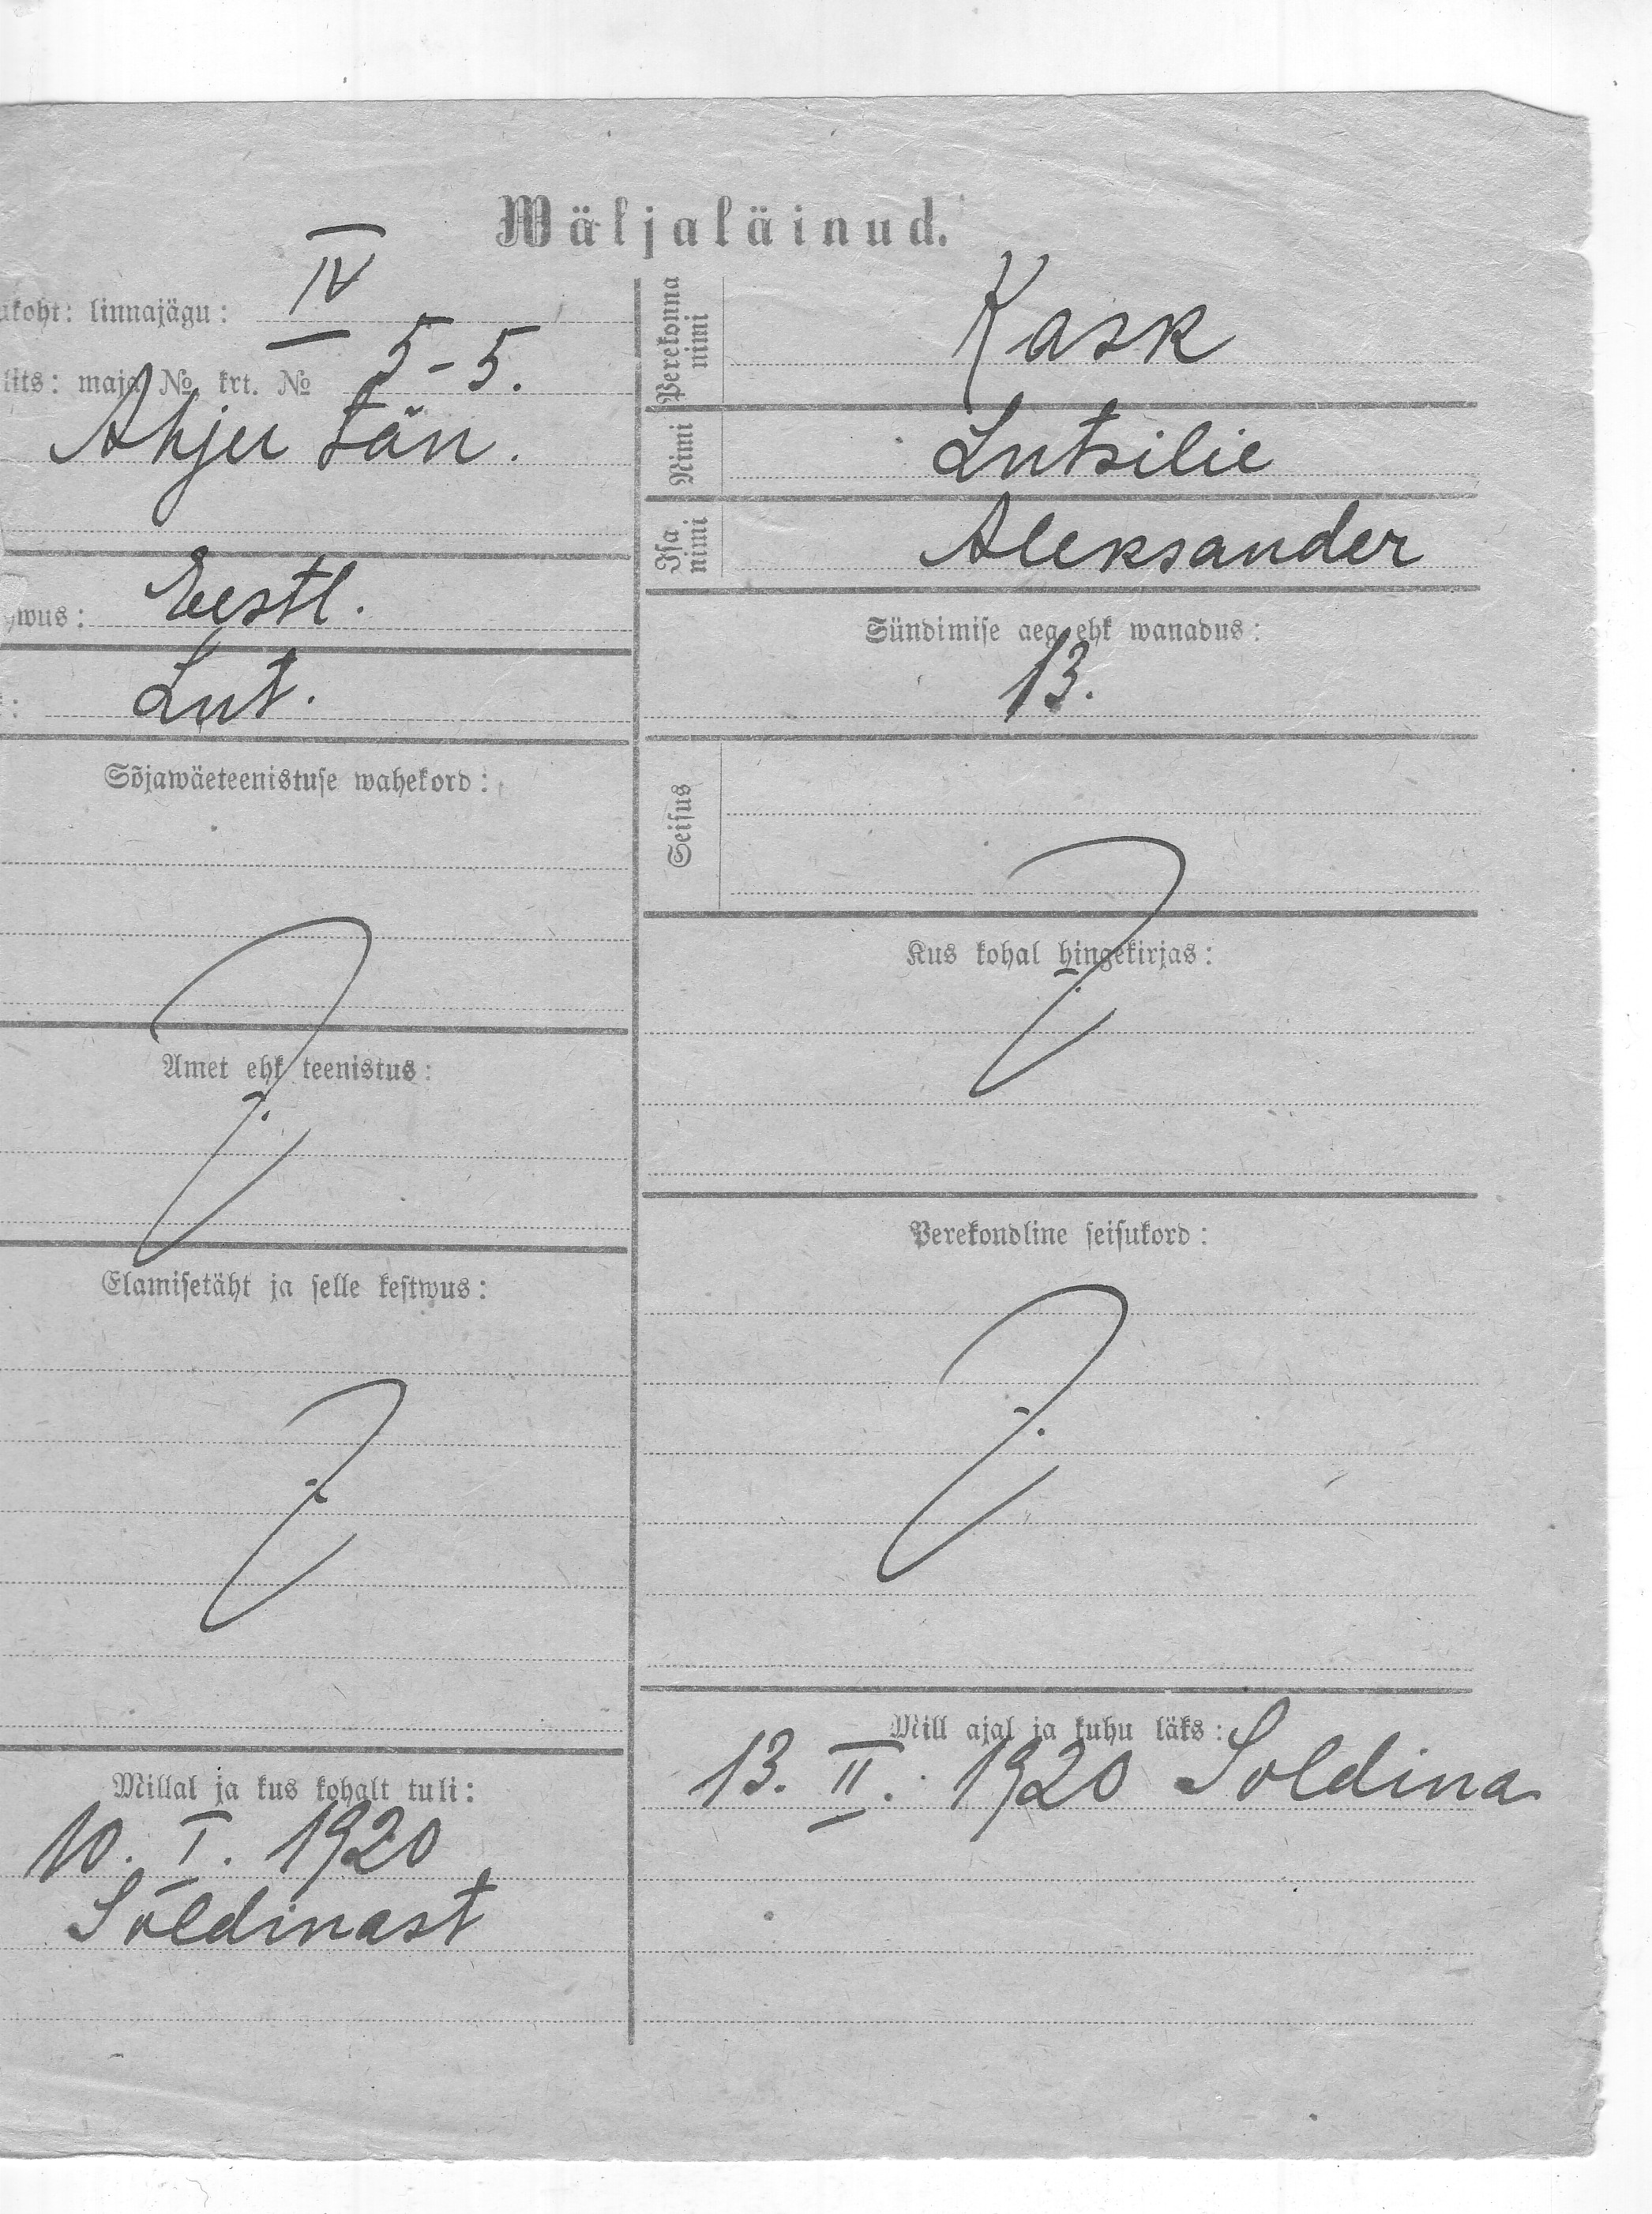 Wäljaläinud.
ukoht: linnajägu: IV
lits: maja №, krt. № 5-5.
Ahju tän.
wus: Eestl.
: Lut.
Sõjawäeteenistuse wahekord:
Amet ehk teenistus:
Elamisetäht ja selle kestwus:
Millal ja kus kohalt tuli:
10. I. 1920
Soldinast
Perekonna nimi Kask
Nimi Lutsilie
Isa nimi Aleksander
Sündimise aeg ehk wanadus:
13.
Seisus
Kus kohal hingekirjas:
Perekondline seisukord:
Mill ajal ja kuhu läks:
13. II. 1920 Soldina